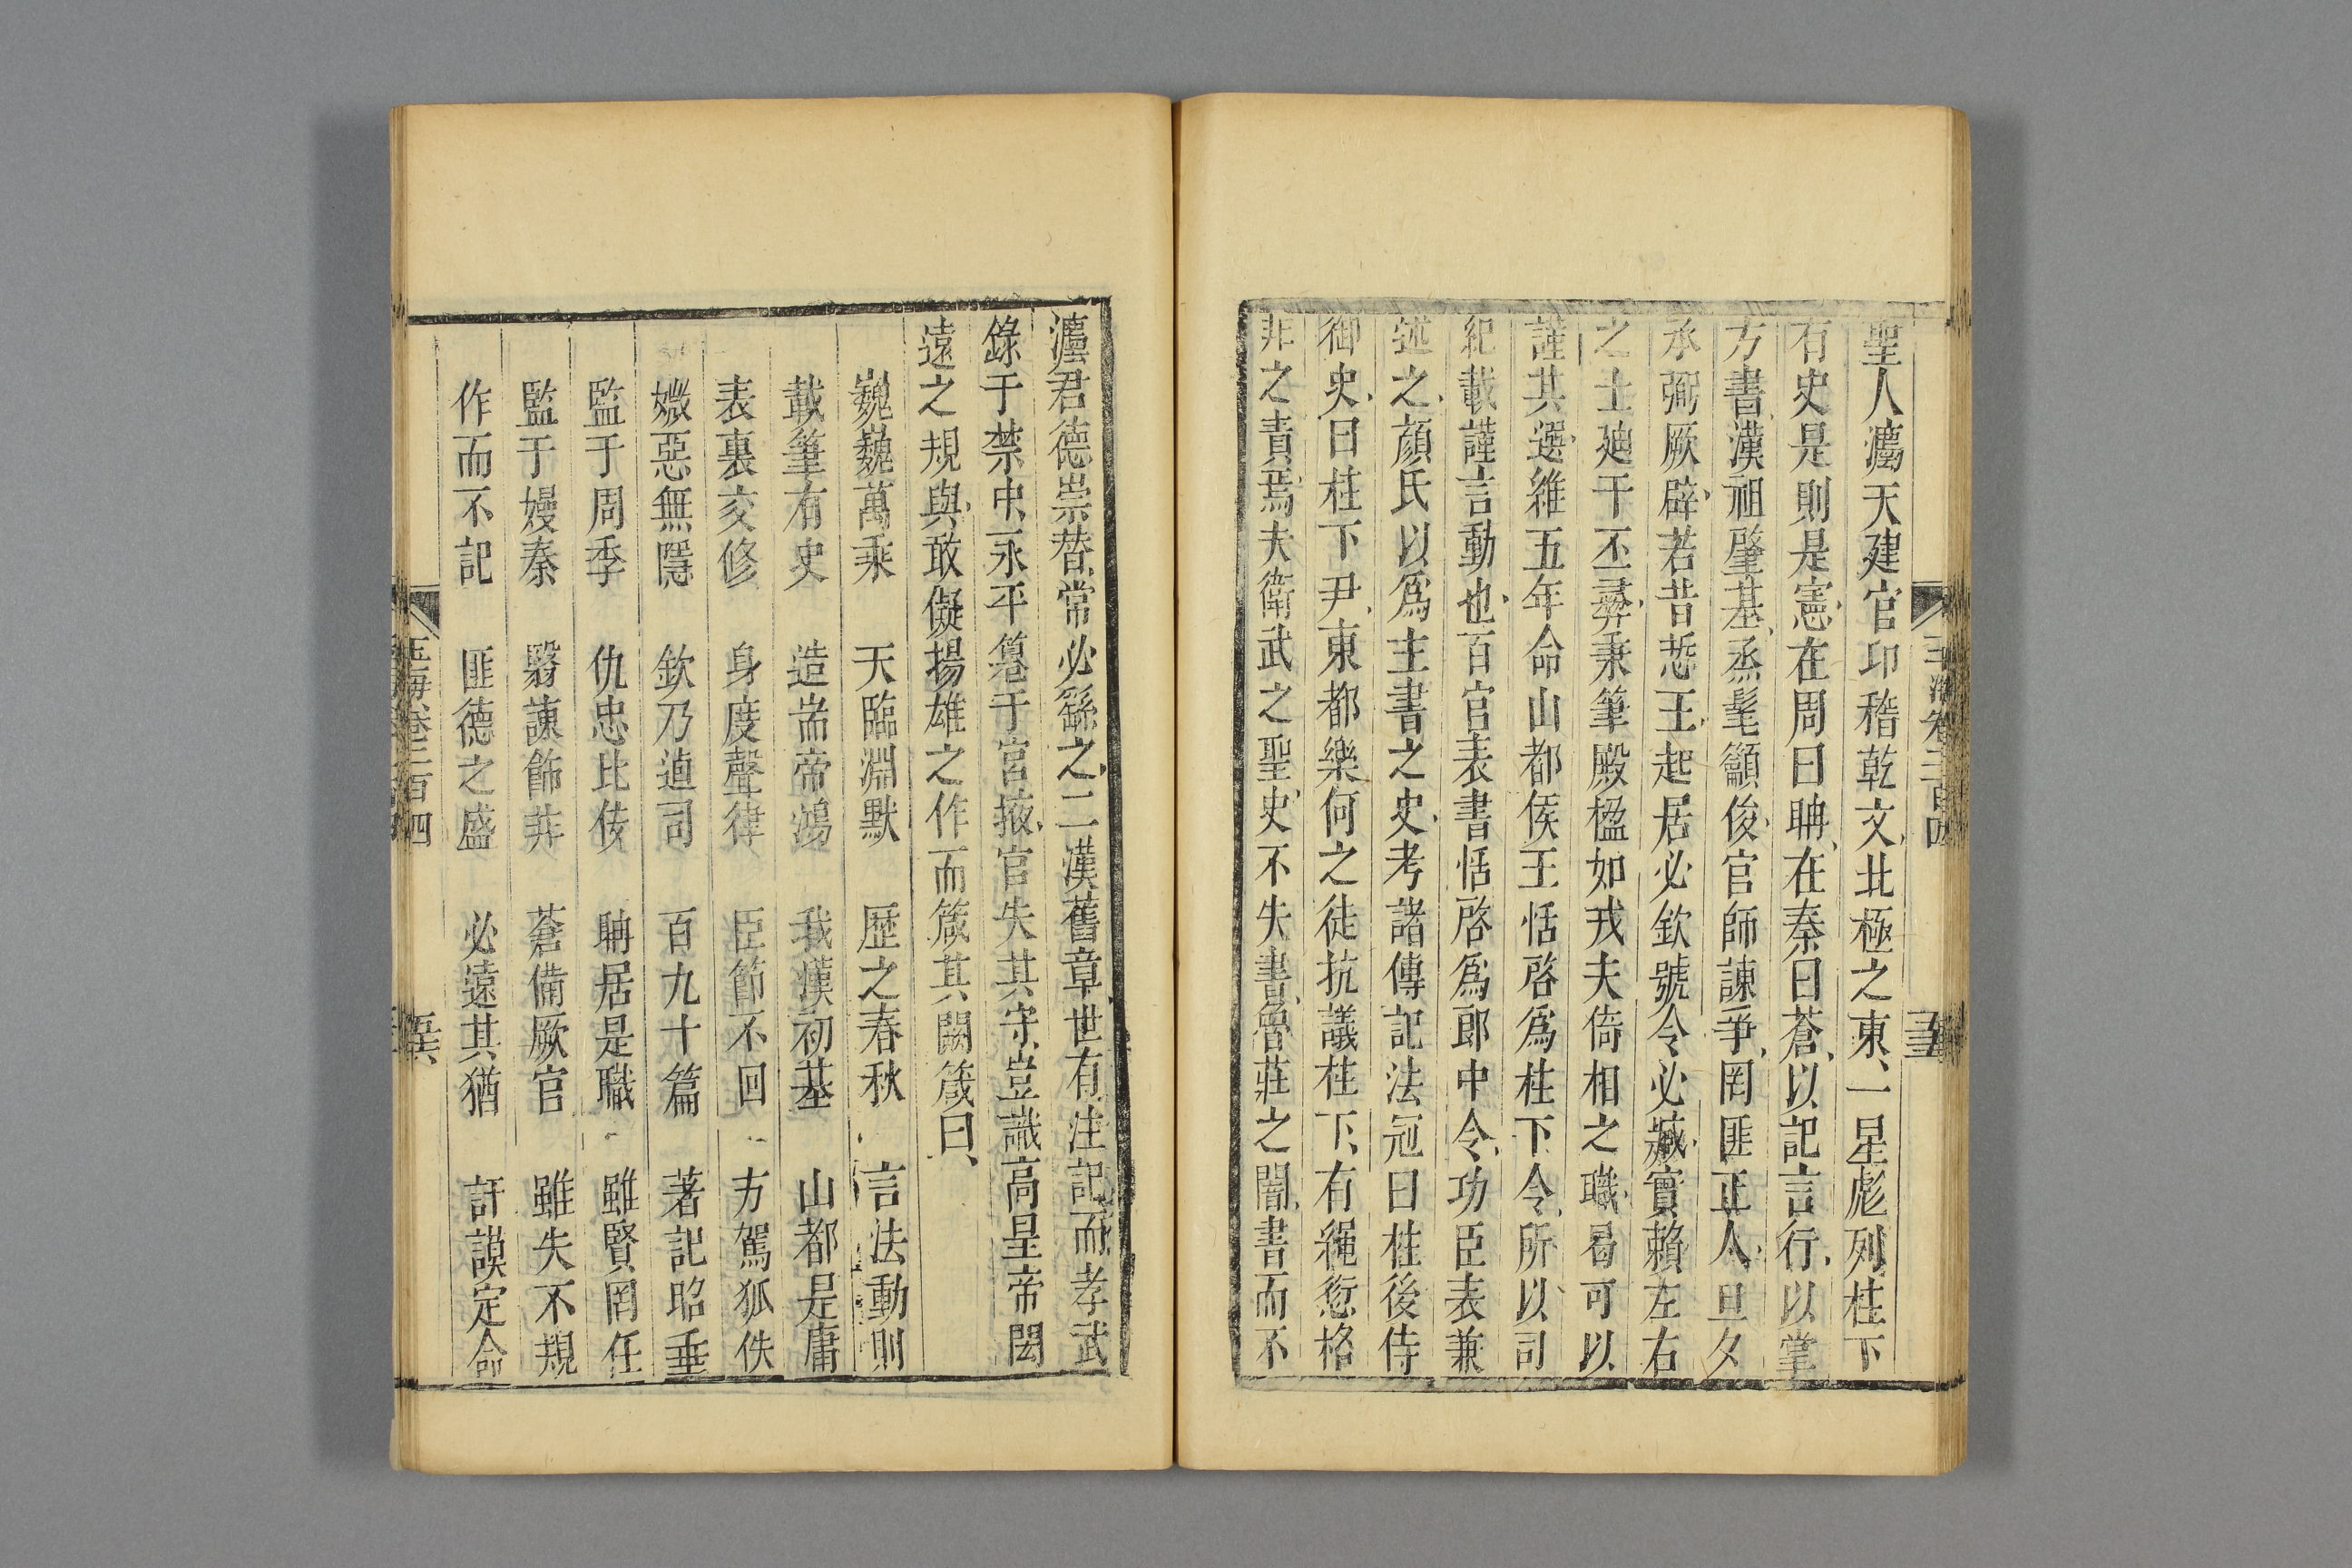 聖人灋天建官卬稽乾文北極之東一星彪列柱下
有史是則是憲在周曰聃在秦曰蒼以記言行以掌
方書漢祖肇基烝髦籲俊官師諫爭罔匪正人旦夕
承弼厥辟若昔悊王起居必欽號令必臧實賴左右
之士廸于丕彞秉筆殿楹如戎夫倚相之職曷可以
謹其選維五年命山都侯王恬啓爲柱下令所以司
紀載謹言動也百官表書恬啓爲郎中令功臣表兼
述之顔氏以爲主書之史考諸傳記法冠曰柱後侍
御史曰柱下尹東都樂何之徒抗議柱下有繩愆格
非之責焉夫衛武之聖史不失書魯莊之闇書而不
玉海卷二百四
五
灋君德崇替常必繇之二漢舊章世有注記而孝武
錄于禁中永平篹于宮掖官失其守豈謶高皇帝閎
遠之規與敢儗揚雄之作而箴其闕箴曰
巍巍萬乘 天臨淵默 歷之春秋 言法動則
載筆有史 造耑帝鴻 我漢初基 山都是庸
表裏交修 身度聲律 臣節不回 方駕狐佚
媺惡無隱 欽乃逌司 百九十篇 著記昭垂
監于周季 仇忠比伎 聃居是職 雖賢罔任
監于嫚秦 翳諫飾非 蒼備厥官 雖失不規
作而不記 匪德之盛 必遠其猶 訏謨定命
玉海卷二百四